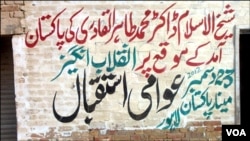 شیخ الاسلام ڈاکٹر محمد طاہر القادری کی پاکستان
آمد کے موقع پر انقلاب انگیز
23 دسمبر 2012
عوامی استقبال
مینار پاکستان
لاہور
VOA